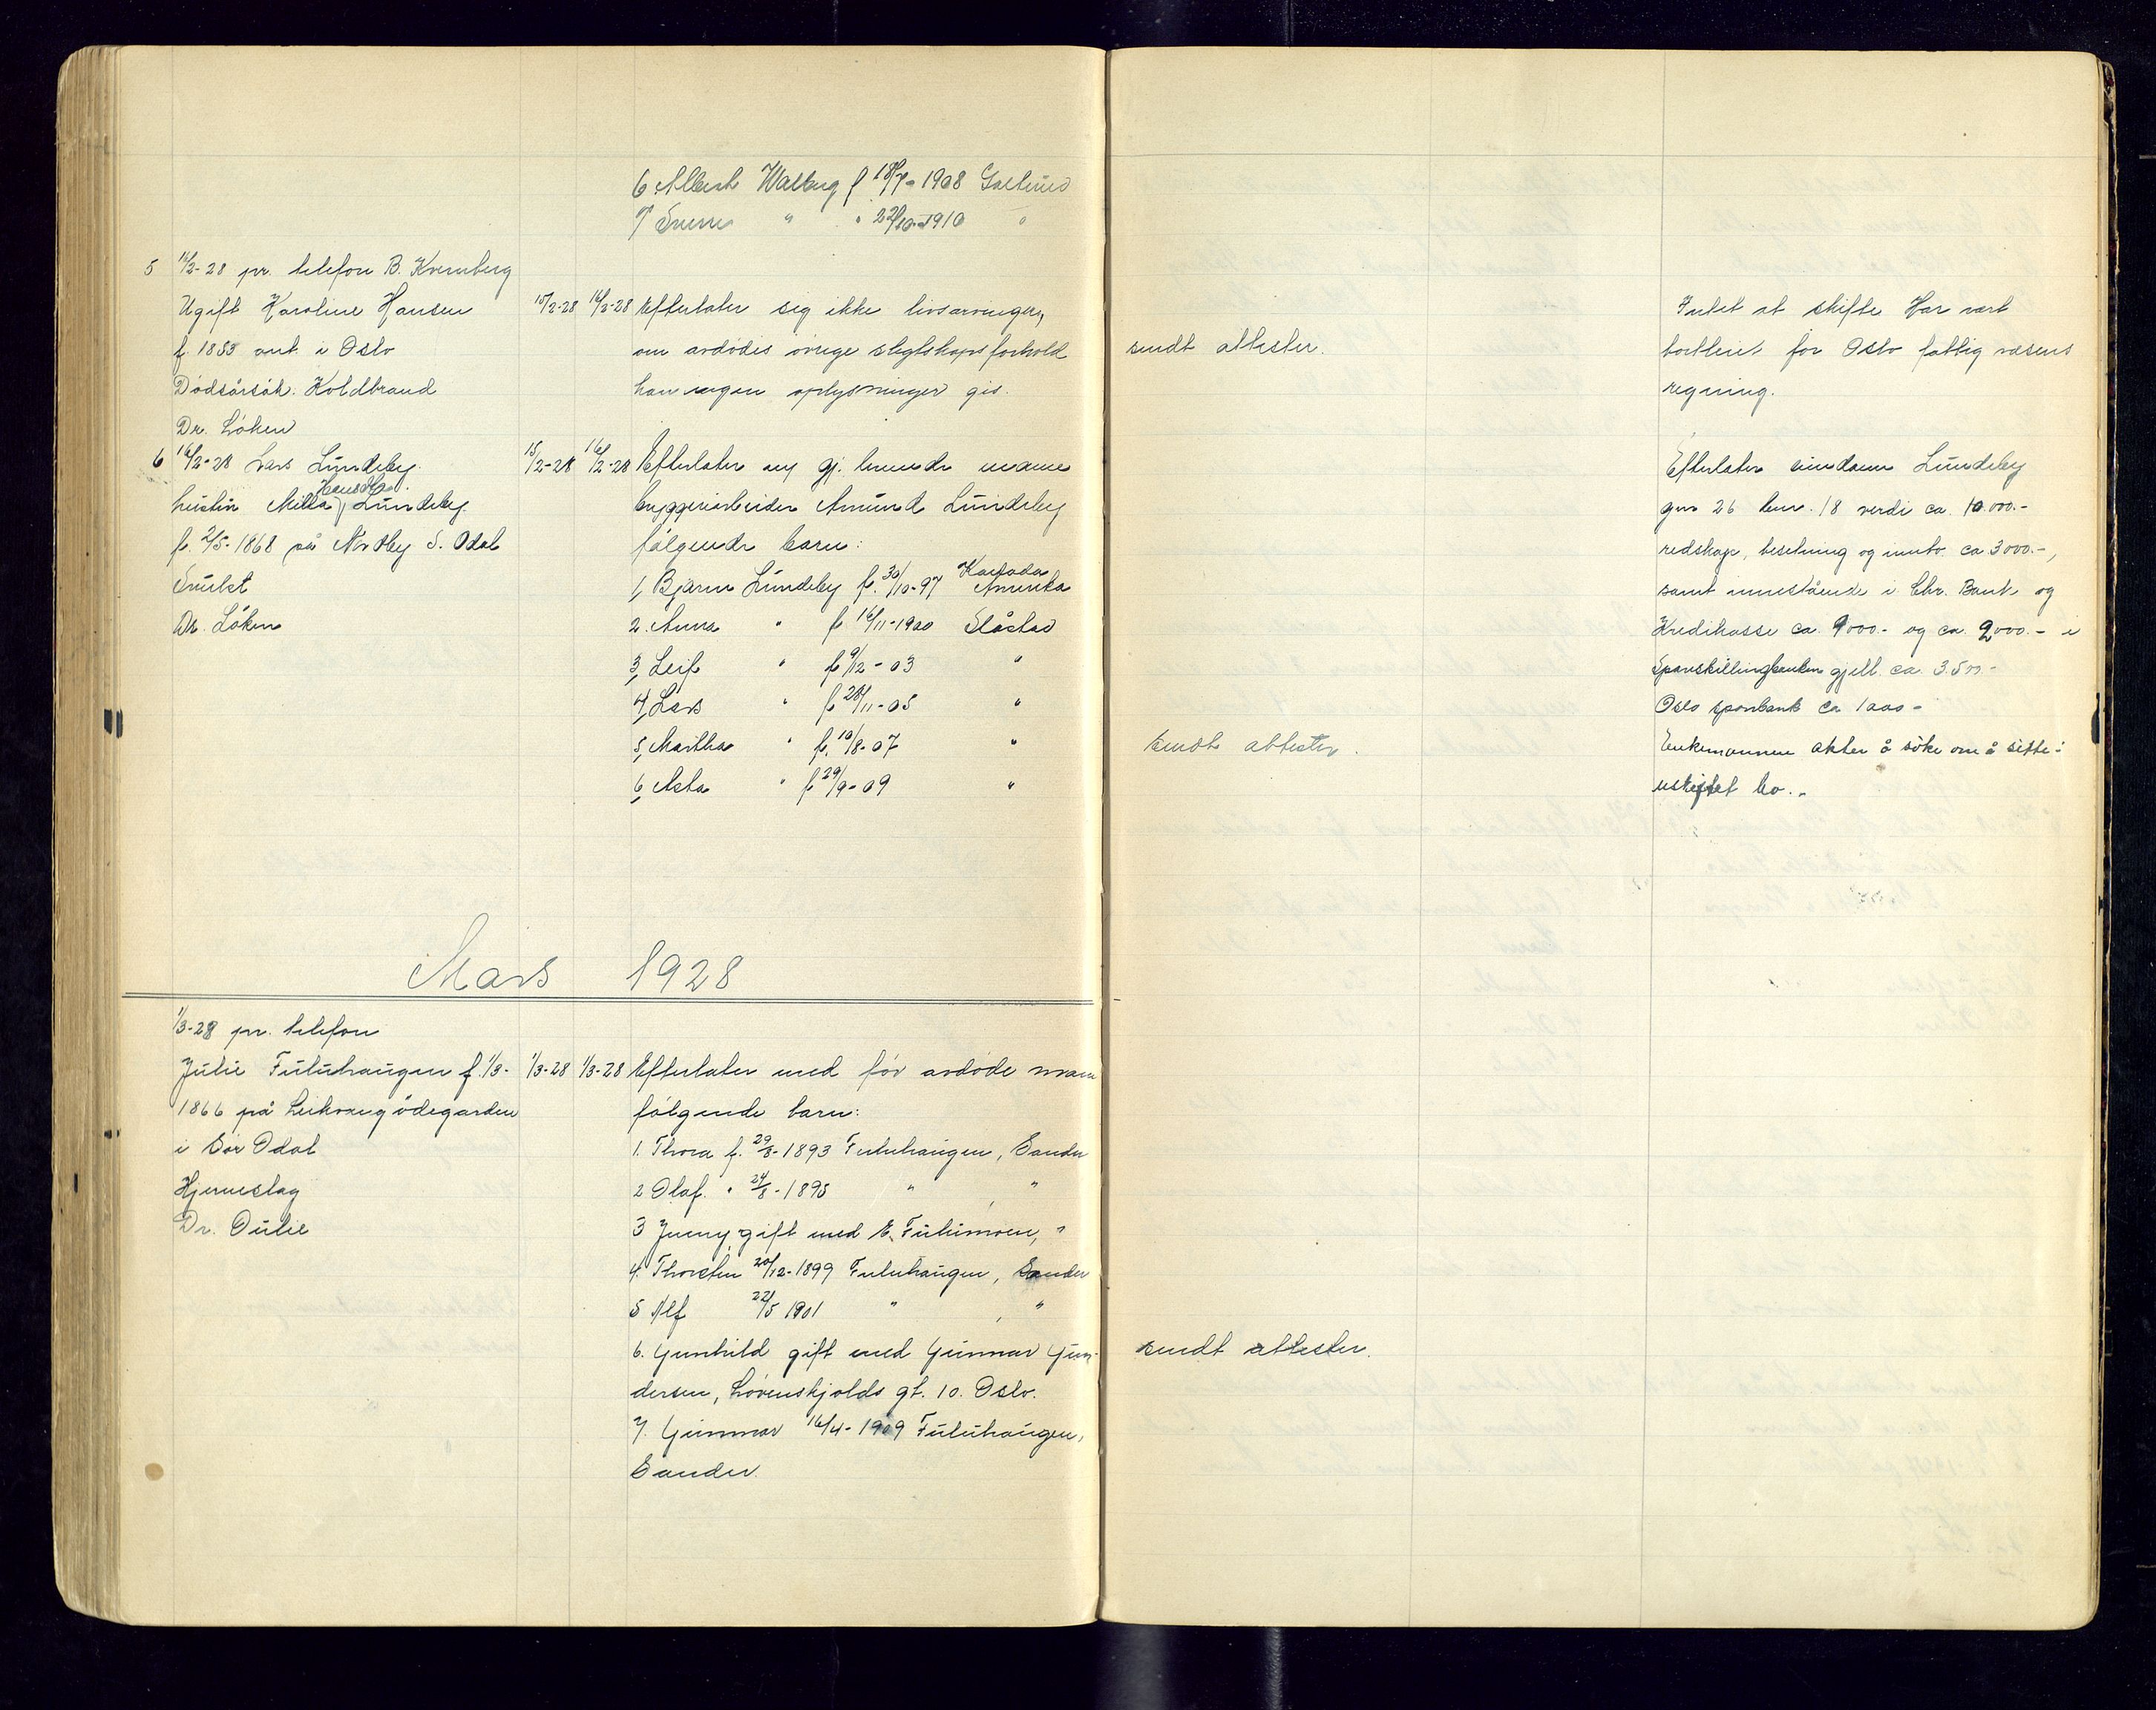 6 Albert Walberg f 18/7-1908 Galterud
7 Sverre " " 22/10-1910 "
5 16/2-28 pr. telefon B. Kvernberg
Ugift Karoline Hansen 15/2-28 16/2-28 Efterlater sig ikke livsarvinger,
f. 1853 ant. i Oslo om avdødes øvrige slegtskapsforhold
Dødsårsak. Koldbrand kan ingen oplysninger gis.
Dr. Løken
sendt attester.
Intet at skifte Har vært
bortleiet for Oslo fattigvæsens
regning.
6 16/2-28 Lars Lundeby. 15/2-28 16/2-28 Efterlater sig gj. levende mann
Hansdtr.
hustru Milla Lundeby byggeriarbeider Amund Lundeby
f. 2/5-1868 på Nordby S. Odal følgende barn:
Svulst 1, Bjarne Lundeby f. 30/10-97 Kanada Amerika
Dr. Løken 2. Anna " f 16/11-1900 Slåstad
3, Leif " f 9/12-03 "
4, Lars " f 28/11-05 "
5, Martha " f. 10/8-07 "
6, Asta " f 29/9-09 "
sendt attester.
Efterlater eiendom Lundeby
gnr 26 bnr. 18 verdi ca. 10.000.-
redskap, besetning og innbo ca 3000.-,
samt innestående i Chr. Bank og
Kredikasse ca. 9000.- og ca. 2000.- i
Sparskillingbanken gjell. ca. 3.500-
Oslo sparbank ca 1000-
Enkemannen akter å søke om å sitte i
uskiftet bo.-
Mars 1928
1/3-28 pr. telefon
Julie Fuluhaugen f. 1/3- 1/3-28 1/3-28 Efterlater med før avdøde mann
1866 på Leikvangødegarden følgende barn:
i Sør Odal 1. Thora f. 29/8-1893 Fuluhaugen, Sander
Hjerneslag 2 Olaf. " 24/8-1895 " , "
Dr. Oulie 3 Jenny, gift med E. Fulumoen, "
4. Thorsten 20/12-1899 Fuluhaugen, Sander
5 Alf 22/5 1901 " , "
6. Gunhild gift med Gunnar Gun-
dersen, Løvenskjolds gt. 10. Oslo.
7. Gunnar 16/4-1909 Fuluhaugen,
Sander.
sendt attester.